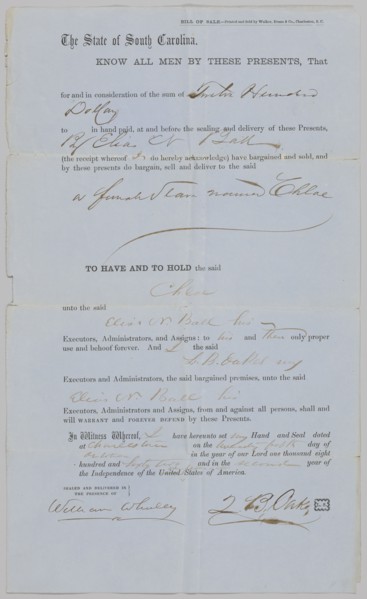 BILL OF SALE.—Printed and sold by Walker, Evans & Co., Charleston, S. C.
The State of South Carolina.
KNOW ALL MEN BY THESE PRESENTS, That
for and in consideration of the sum of Twelve Hundred
Dollars
to in hand paid, at and before the sealing and delivery of these Presents,
By Elias N Ball
(the receipt whereof I do hereby acknowledge) have bargained and sold, and
by these presents do bargain, sell and deliver to the said
a female slave named Chloe
TO HAVE AND TO HOLD the said
Chloe
unto the said
Elias N. Ball his
Executors, Administrators, and Assigns: to his and their only proper
use and behoof forever. And I the said
Z. B. Oakes my
Executors and Administrators, the said bargained premises, unto the said
Elias N. Ball his
Executors, Administrators and Assigns, from and against all persons, shall and
will WARRANT and FOREVER DEFEND by these Presents.
In Witness Whereof, I have hereunto set my Hand and Seal dated
at Charleston on the day of
in the year of our Lord one thousand eight
hundred and and in the year of
the Independence of the United States of America.
SEALED AND DELIVERED IN
THE PRESENCE OF
William Whaley
Z B Oakes